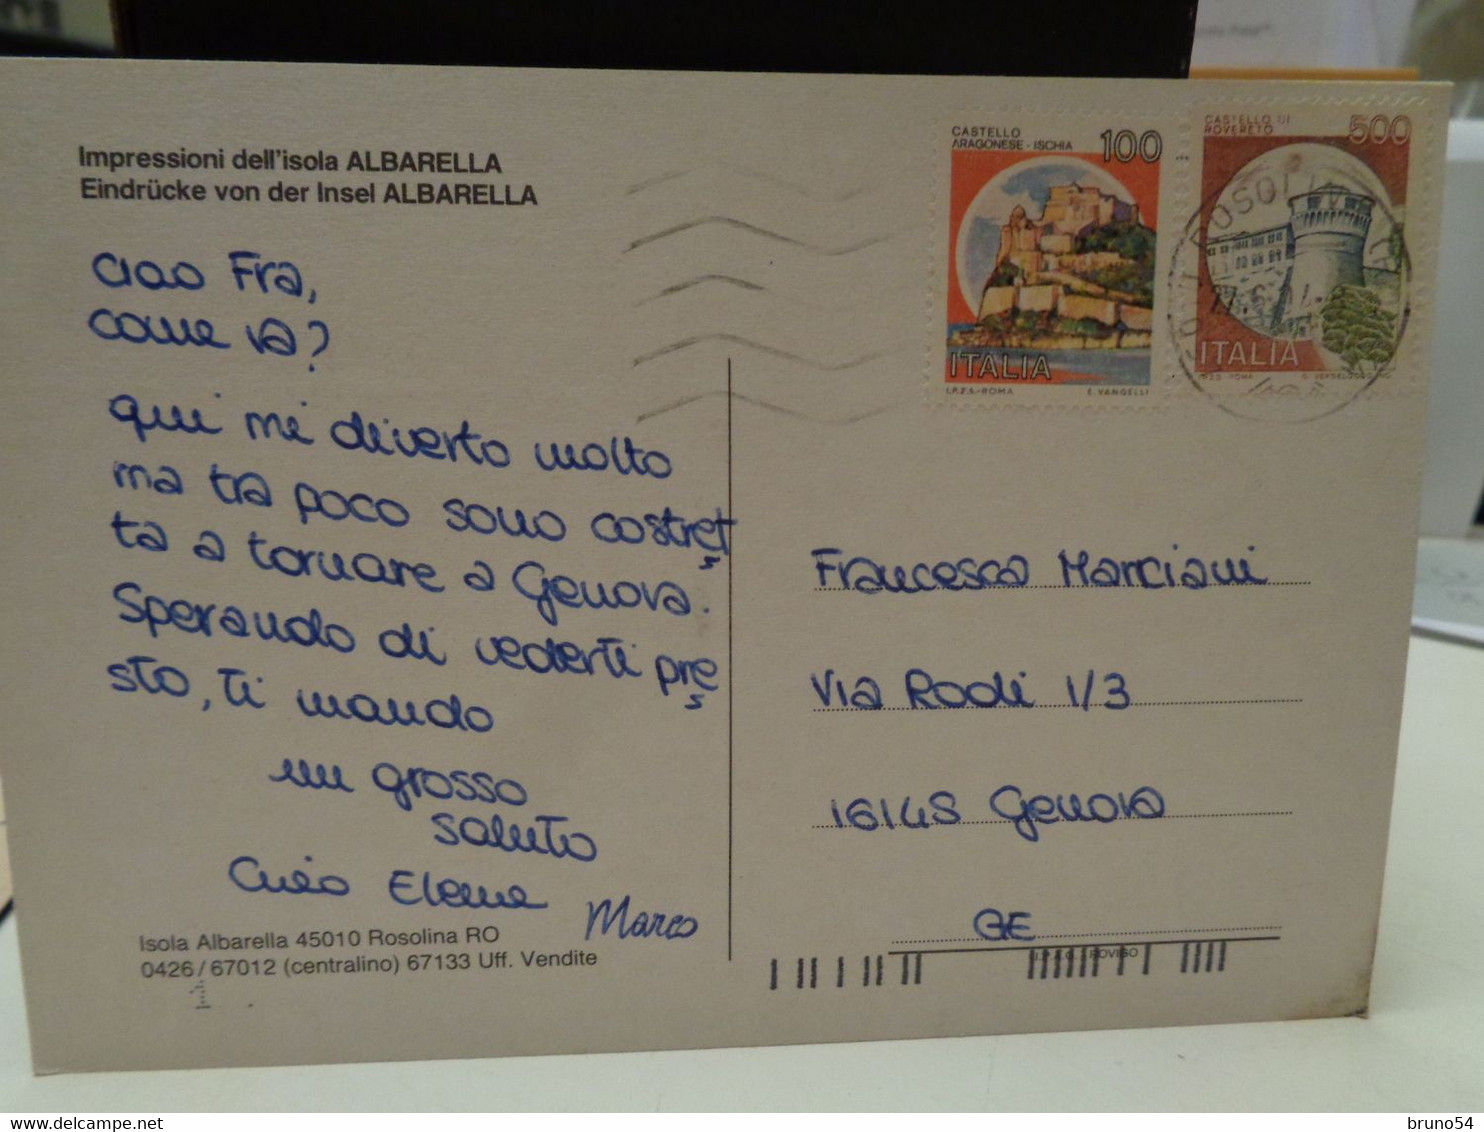 Impressioni dell'isola ALBARELLA
Eindrücke von der Insel ALBARELLA
CASTELLO
ARAGONESE - ISCHIA
100
ITALIA
I.P.Z.S. - ROMA
E. VANGELLI
CASTELLO DI
ROVERETO
500
ITALIA
I.P.Z.S. ROMA
ciao Fra,
come va?
qui mi diverto molto
ma tra poco sono costret
ta a tornare a Genova.
Sperando di vederti pre
sto, ti mando
un grosso
saluto
Ciao Elena
Marco
Francesca Marciani
Via Rodi 1/3
16145 Genova
GE
Isola Albarella 45010 Rosolina RO
0426/67012 (centralino) 67133 Uff. Vendite
1
bruno54